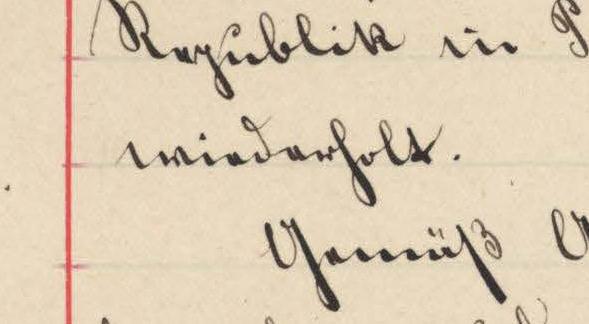 Republik in P
wiederholt.
Gemäß A